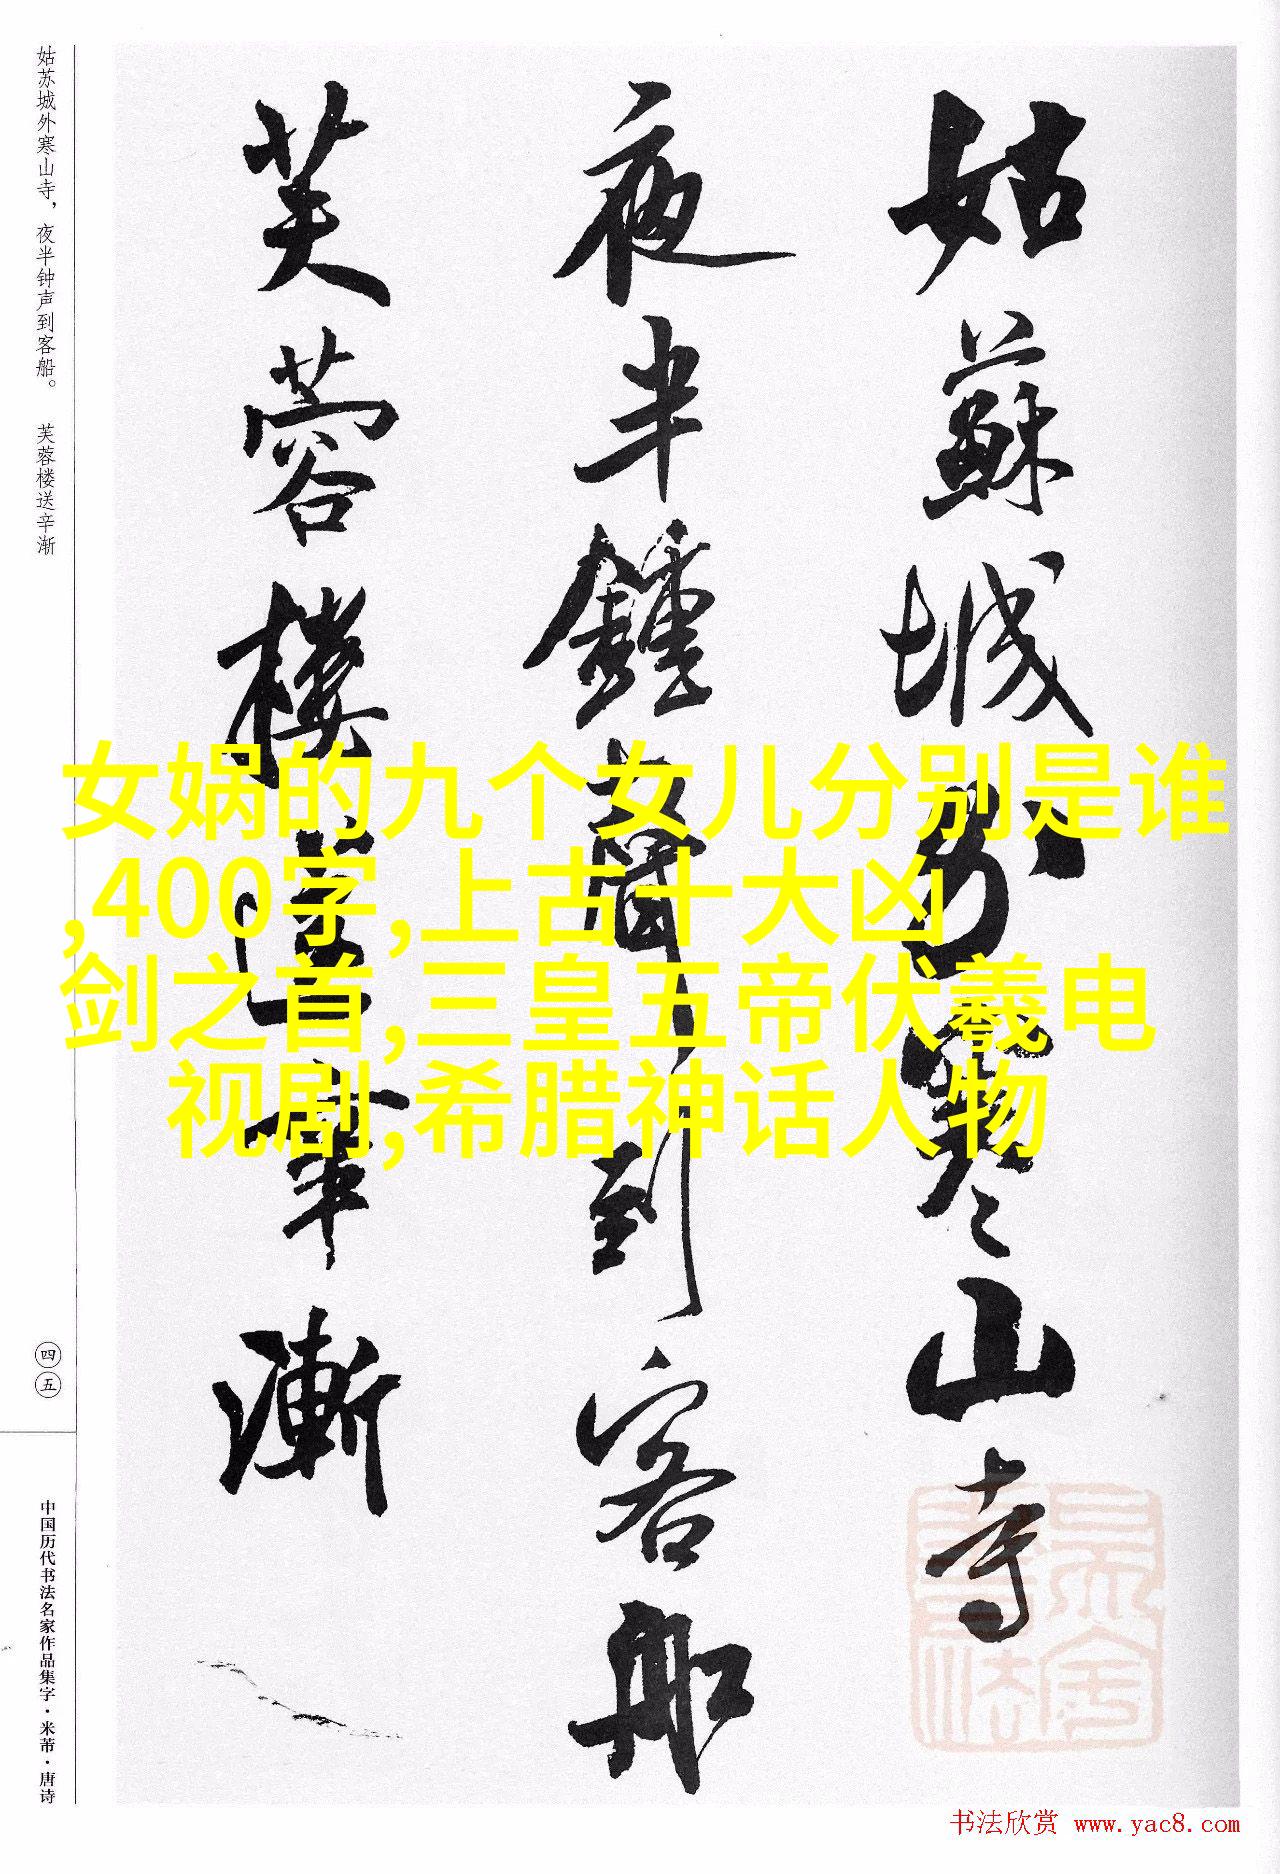 姑苏城外寒山寺，夜半钟声到客船。 芙蓉楼送辛渐
姑蘇城外寒山寺
夜半鐘聲到客船
芙蓉樓送辛漸
女娲的九个女儿分别是谁
,400字,上古十大凶
剑之首,三皇五帝伏羲电
视剧,希腊神话人物
四五
中国历代书法名家作品集字·米芾·唐诗
书法欣赏 www.yac8.com